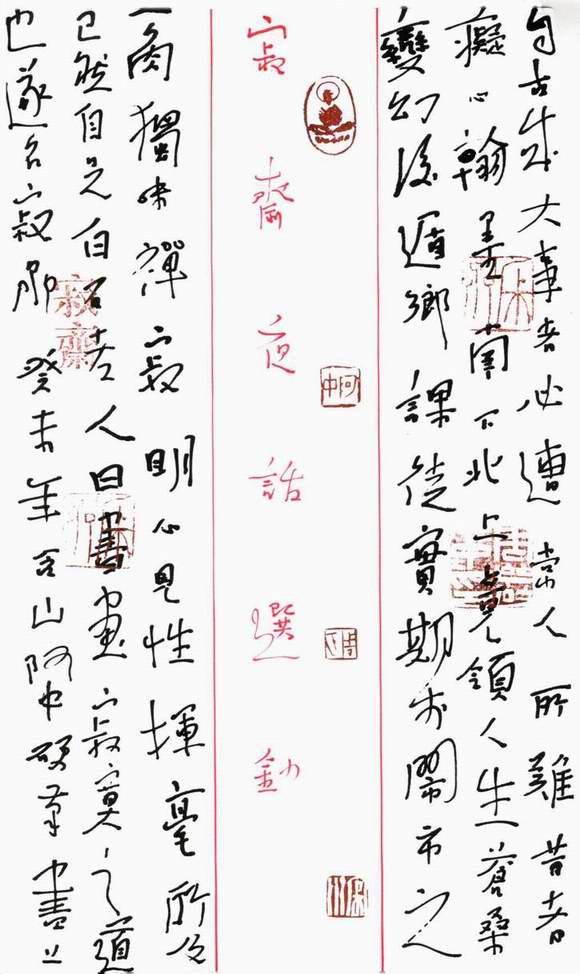 自古成大事者必遭常人所難昔者
癡心翰墨南下北上領人生蒼桑
變幻後遁鄉課徒實期於鬧市之
寂齋夜話選鈔
一角獨味禪寂明心見性揮毫所及
已然自足白石老人曰書畫寂寞之道
也遂名寂 癸未年含山阿中硬筆書
寂齋